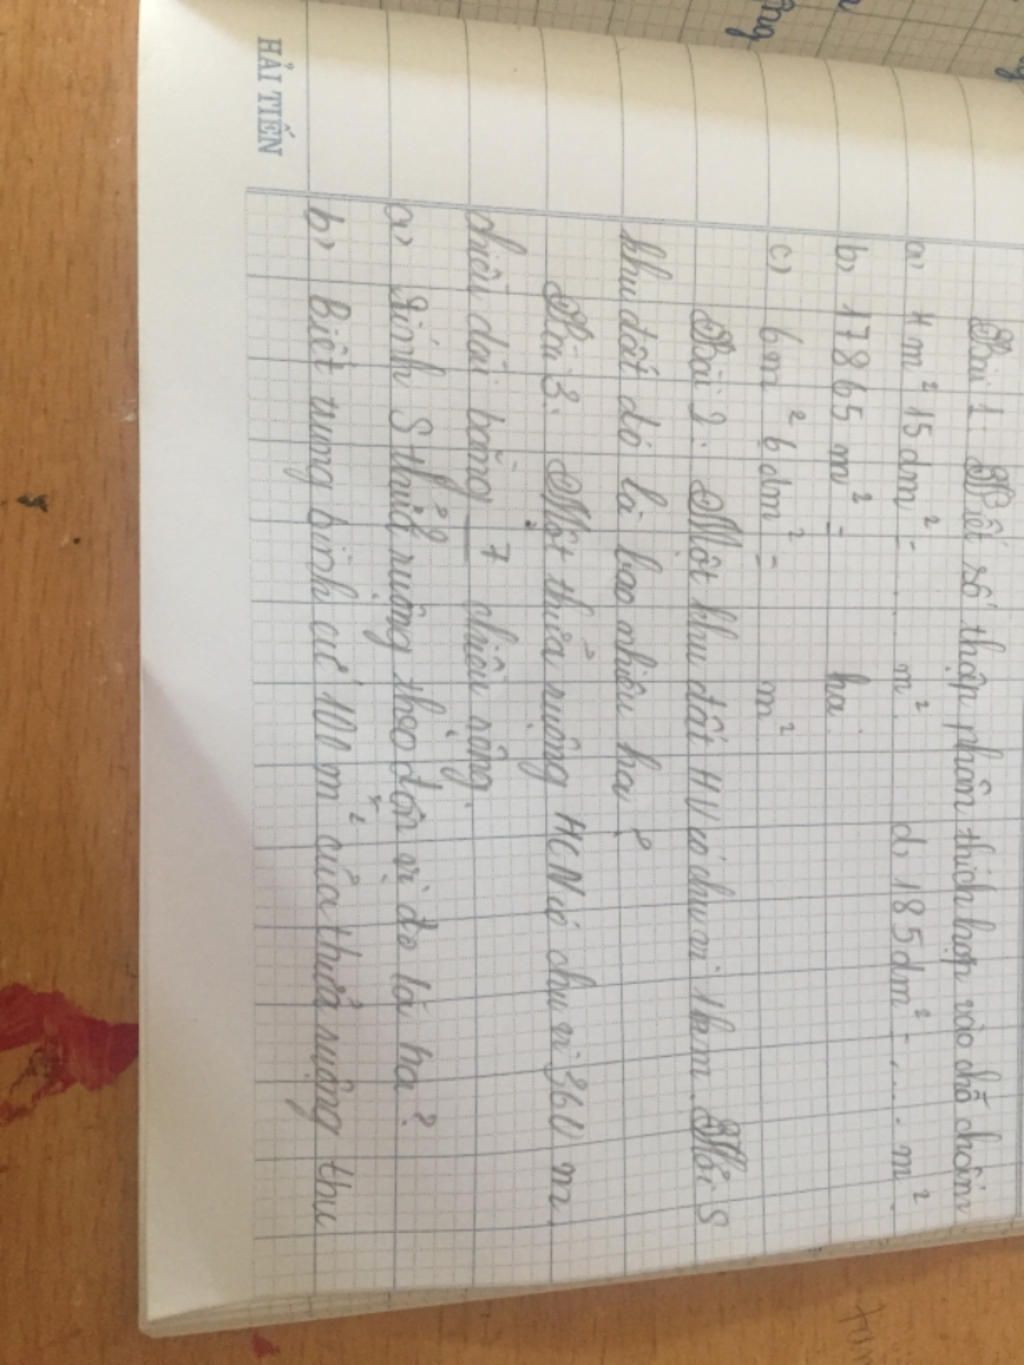 Bài 1: Viết số thập phân thích hợp vào chỗ chấm
a) 4m² 15dm² = ...... m². d, 185dm² = ..... m².
b) 17865 m² = ha.
c) 6m² 6dm² = m²
Bài 2: Một khu đất HV có chu vi 1km. Hỏi S
khu đất đó là bao nhiêu ha?
Bài 3: Một thửa ruộng HCN có chu vi 360 m.
chiều dài bằng 7 chiều rộng.
a) Tính S thửa ruộng theo đơn vị đo là ha?
b) Biết trung bình cứ 100 m² của thửa ruộng thu
HẢI TIẾN